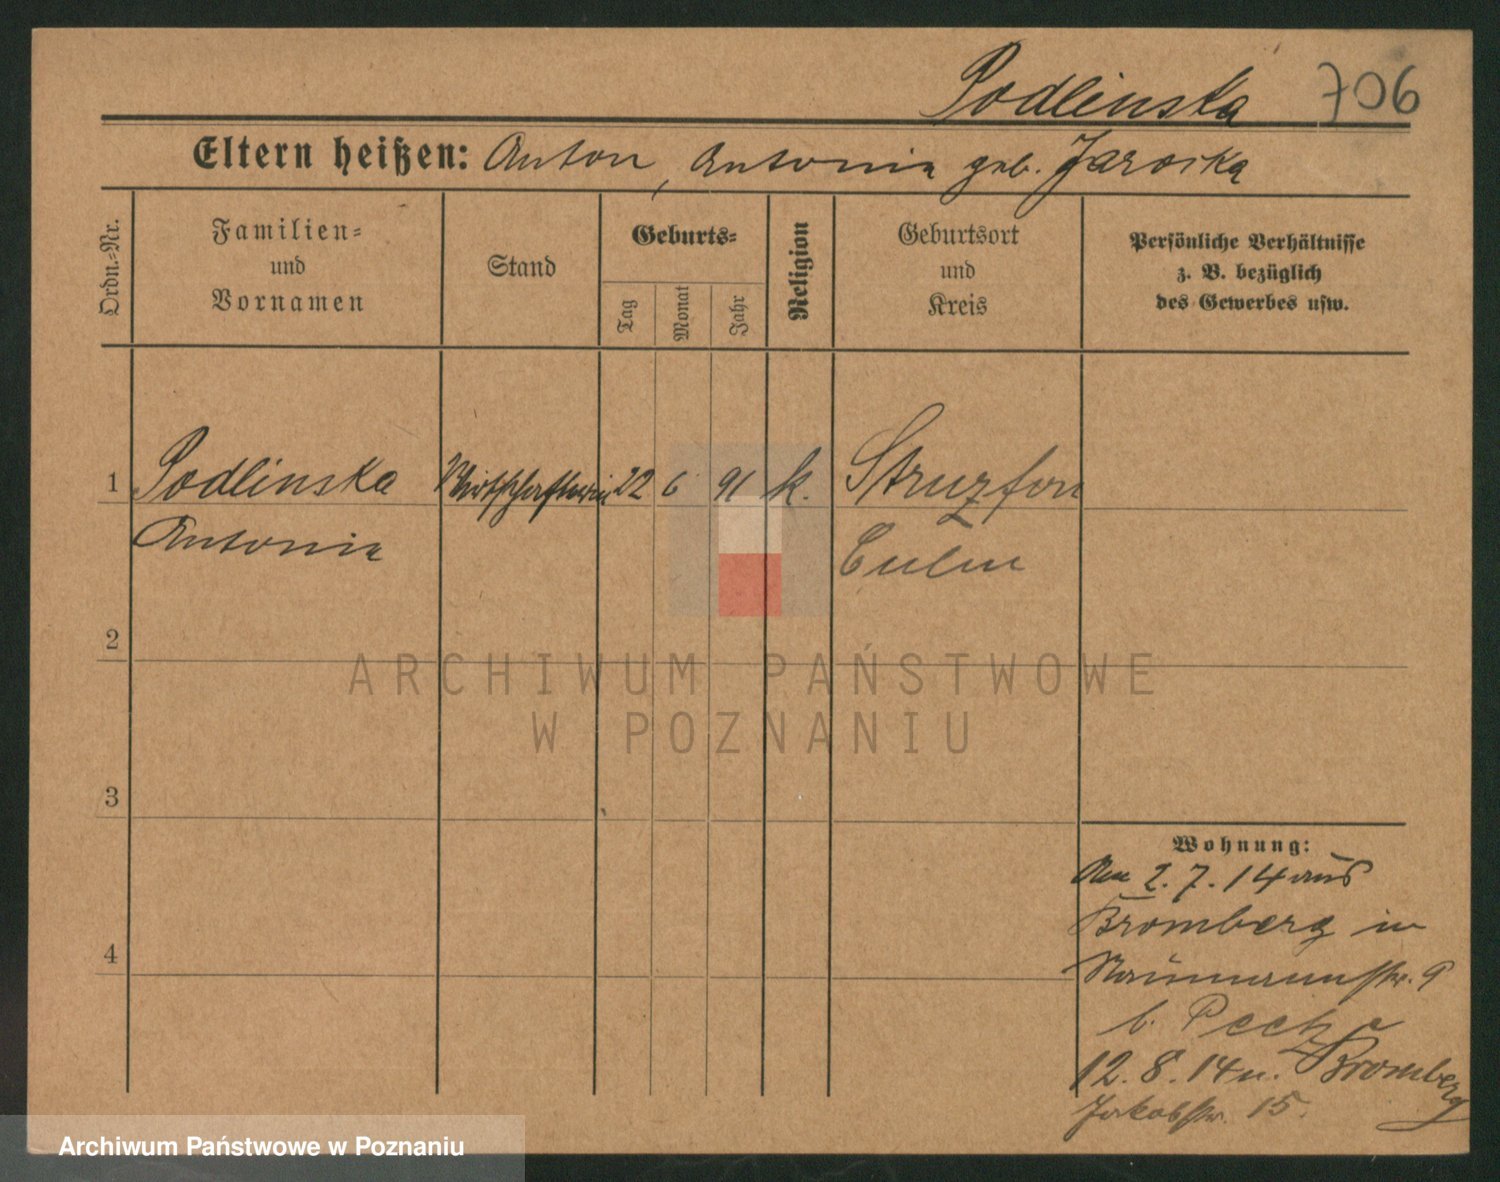 Podlinska 706
Eltern heißen: Anton, Antonia geb. Jaroska
Ordn.-Nr.
Familien-
und
Vornamen
Stand
Geburts-
Tag
Monat
Jahr
Religion
Geburtsort
und
Kreis
Persönliche Verhältnisse
z. B. bezüglich
des Gewerbes usw.
1 Podlinska Wirtschafterin 22 6 91 k. Struzfon
Antonia Culm
2
ARCHIWUM PAŃSTWOWE
W POZNANIU
3
Wohnung:
Am 2.7.14 aus
Bromberg in
4
Naumannstr. 9
b.
12.8.14 n. Bromberg
Jakobstr. 15.
Archiwum Państwowe w Poznaniu